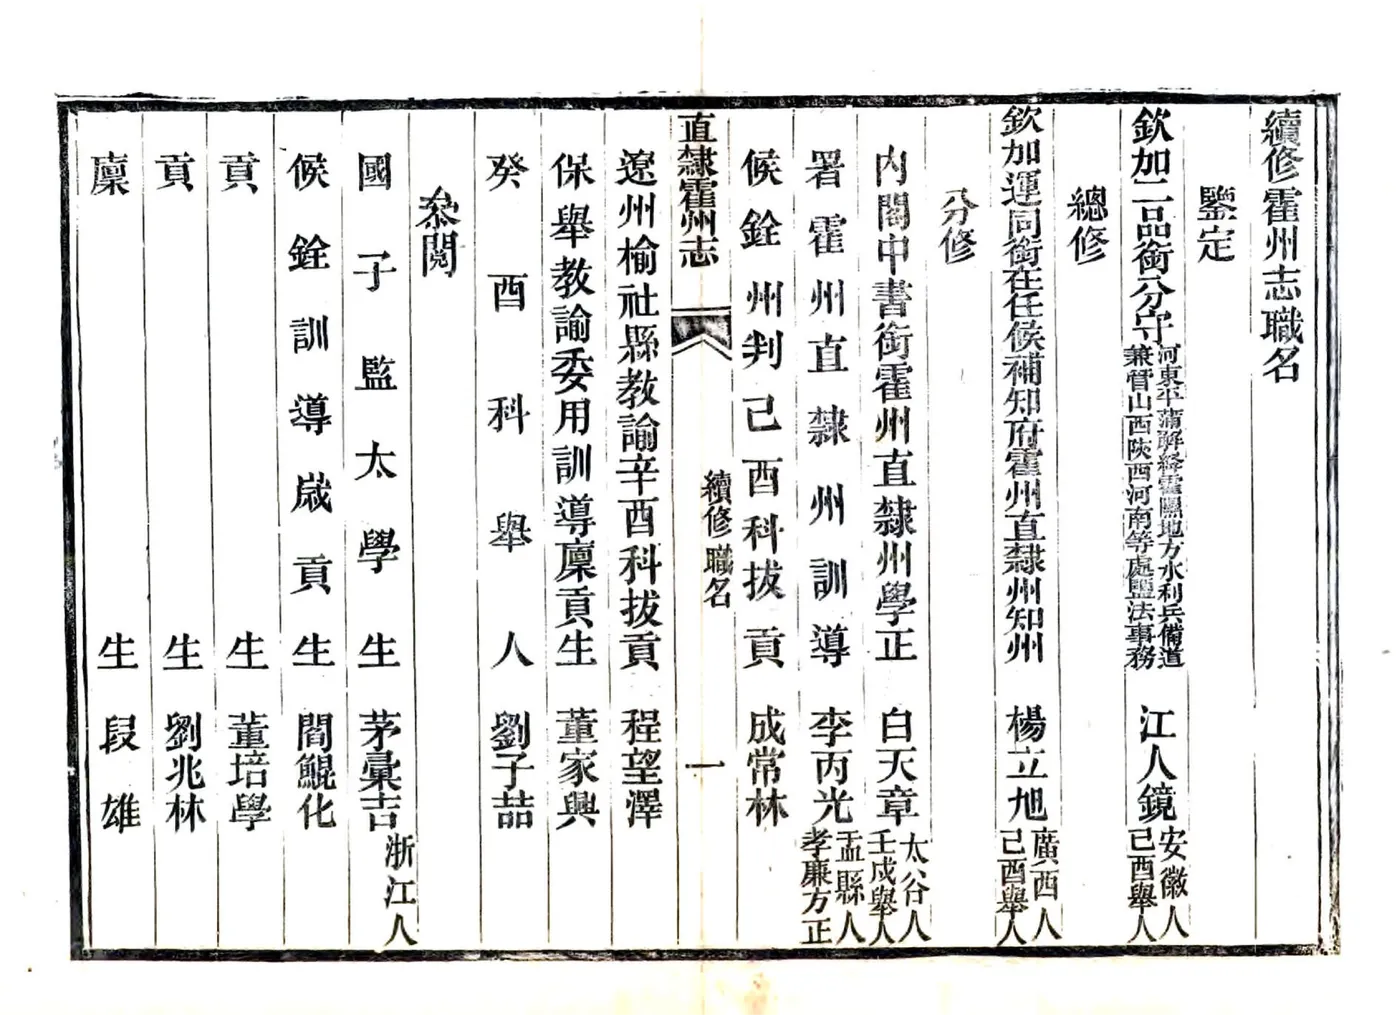 續修霍州志職名
鑒定
欽加二品銜分守河東平蒲解絳霍隰地方水利兵備道兼管山西陝西河南等處鹽法事務江人鏡安徽人己酉舉人
總修
欽加運同銜在任候補知府霍州直隸州知州楊立旭廣西人己酉舉人
分修
內閣中書銜霍州直隸州學正白天章太谷人壬戌舉人
署霍州直隸州訓導李丙光盂縣人孝廉方正
候銓州判己酉科拔貢成常林
直隸霍州志
續修職名
一
遼州榆社縣教諭辛酉科拔貢程望澤
保舉教諭委用訓導廩貢生董家興
癸酉科舉人劉子喆
叅閱
國子監太學生茅彙吉浙江人
候銓訓導歲貢生閻鯤化
貢生董培學
貢生劉兆林
廩生段雄